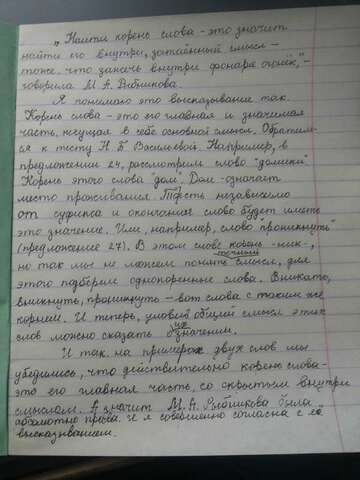 „Найти корень слова - это значит
найти его внутри, затаённый смысл -
то же, что зажечь внутри фонаря огонёк", -
говорила М. А. Рыбникова.
Я понимаю это высказывание так.
Корень слова - это его главная и значимая
часть, несущая в себе основной смысл. Обратим-
ся к тексту Н. Б Васильевой. Например, в
предложении 24, рассмотрим слово "домишки"
Корень этого слова "дом". Дом - означает
место проживания. То есть независимо
от суфикса и окончания слово будет иметь
это значение. Или, например, слово "проникнуть"
(предложение 27). В этом слове корень -ник-,
но так мы не можем понять точный смысл, для
этого подберём однокоренные слова. Вникать,
вникнуть, проникнуть - вот слова с таким же
корнем. И теперь, уловив общий смысл этих
слов можно сказать их значении.
И так, на примере двух слов мы
убедились, что действительно корень слова -
это его главная часть, со скрытым внутри
смыслом. А значит М. А. Рыбникова была
абсолютно права. И я совершенно согласна с её
высказыванием.